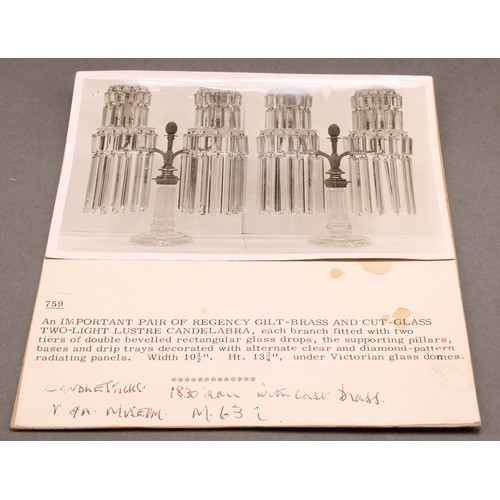 759
An IMPORTANT PAIR OF REGENCY GILT-BRASS AND CUT-GLASS
TWO-LIGHT LUSTRE CANDELABRA, each branch fitted with two
tiers of double bevelled rectangular glass drops, the supporting pillars,
bases and drip trays decorated with alternate clear and diamond-pattern
radiating panels. Width 10½". Ht. 13¾", under Victorian glass domes.
*************
CANDLESTICKS. 1830 with cast brass.
V & A. MUSEUM. M. 63